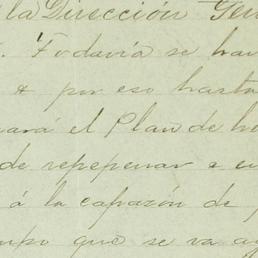 la Dirección Gen
Todavía se ha
& por eso hasta
ará el Plan de
de repepenar a
á la capazón de
mpo que se va a